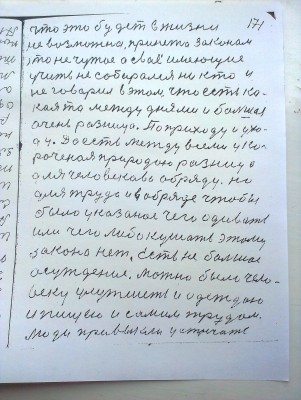 171
что это будет в жизни
невозможна, принята законам
то не чутое а сваё имеющие
учить не собирался ни кто и
не говарил в этом, что есть ка-
кая то между днями и большая
очень разница. По приходу и ухо-
ду. Да есть между всеми уко-
роченая природаю разница
для человекава обряду. но
для труда и в обряде чтобы
было указаное чего одивать
или чего либо кушать этому
закона нет. Есть не большое
осуждение. можно было чело-
веку улучшить и одеждаю
и пищею и самим трудом.
Люди привыкли устричать